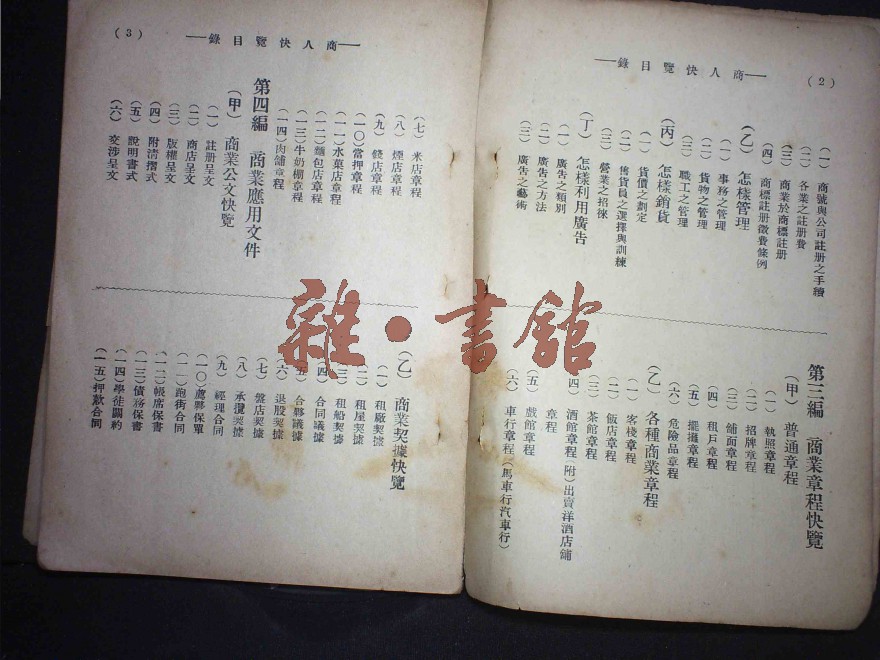 (2)
商人快覽目錄
(一) 商號與公司註册之手續
(二) 各業之註册費
(三) 商業於商標註册
(四) 商標註册徵費條例
(乙) 怎樣管理
(一) 事務之管理
(二) 貨物之管理
(三) 職工之管理
(丙) 怎樣銷貨
(一) 貨價之劃定
(二) 售貨員之選擇與訓練
(三) 營業之招徠
(丁) 怎樣利用廣告
(一) 廣告之類別
(二) 廣告之方法
(三) 廣告之藝術
第三編 商業章程快覽
(甲) 普通章程
(一) 執照章程
(二) 招牌章程
(三) 舖面章程
(四) 租戶章程
(五) 擺攤章程
(六) 危險品章程
(乙) 各種商業章程
(一) 客棧章程
(二) 飯店章程
(三) 茶館章程
(四) 酒館章程(附)出賣洋酒店舖
章程
(五) 戲館章程
(六) 車行章程(馬車行汽車行)
商人快覽目錄
(3)
(七) 米店章程
(八) 煙店章程
(九) 錢店章程
(一〇) 當押章程
(一一) 水菓店章程
(一二) 麵包店章程
(一三) 牛奶棚章程
(一四) 肉舖章程
第四編 商業應用文件
(甲) 商業公文快覽
(一) 註册呈文
(二) 商店呈文
(三) 版權呈文
(四) 附清摺式
(五) 說明書式
(六) 交涉呈文
(乙) 商業契據快覽
(一) 租廠契據
(二) 租屋契據
(三) 租船契據
(四) 合同議據
(五) 合夥議據
(六) 退股契據
(七) 盤店契據
(八) 承攬契據
(九) 經理合同
(一〇) 薦夥保單
(一一) 跑街合同
(一二) 帳席保書
(一三) 債務保書
(一四) 學徒關約
(一五) 押款合同
雜·書館